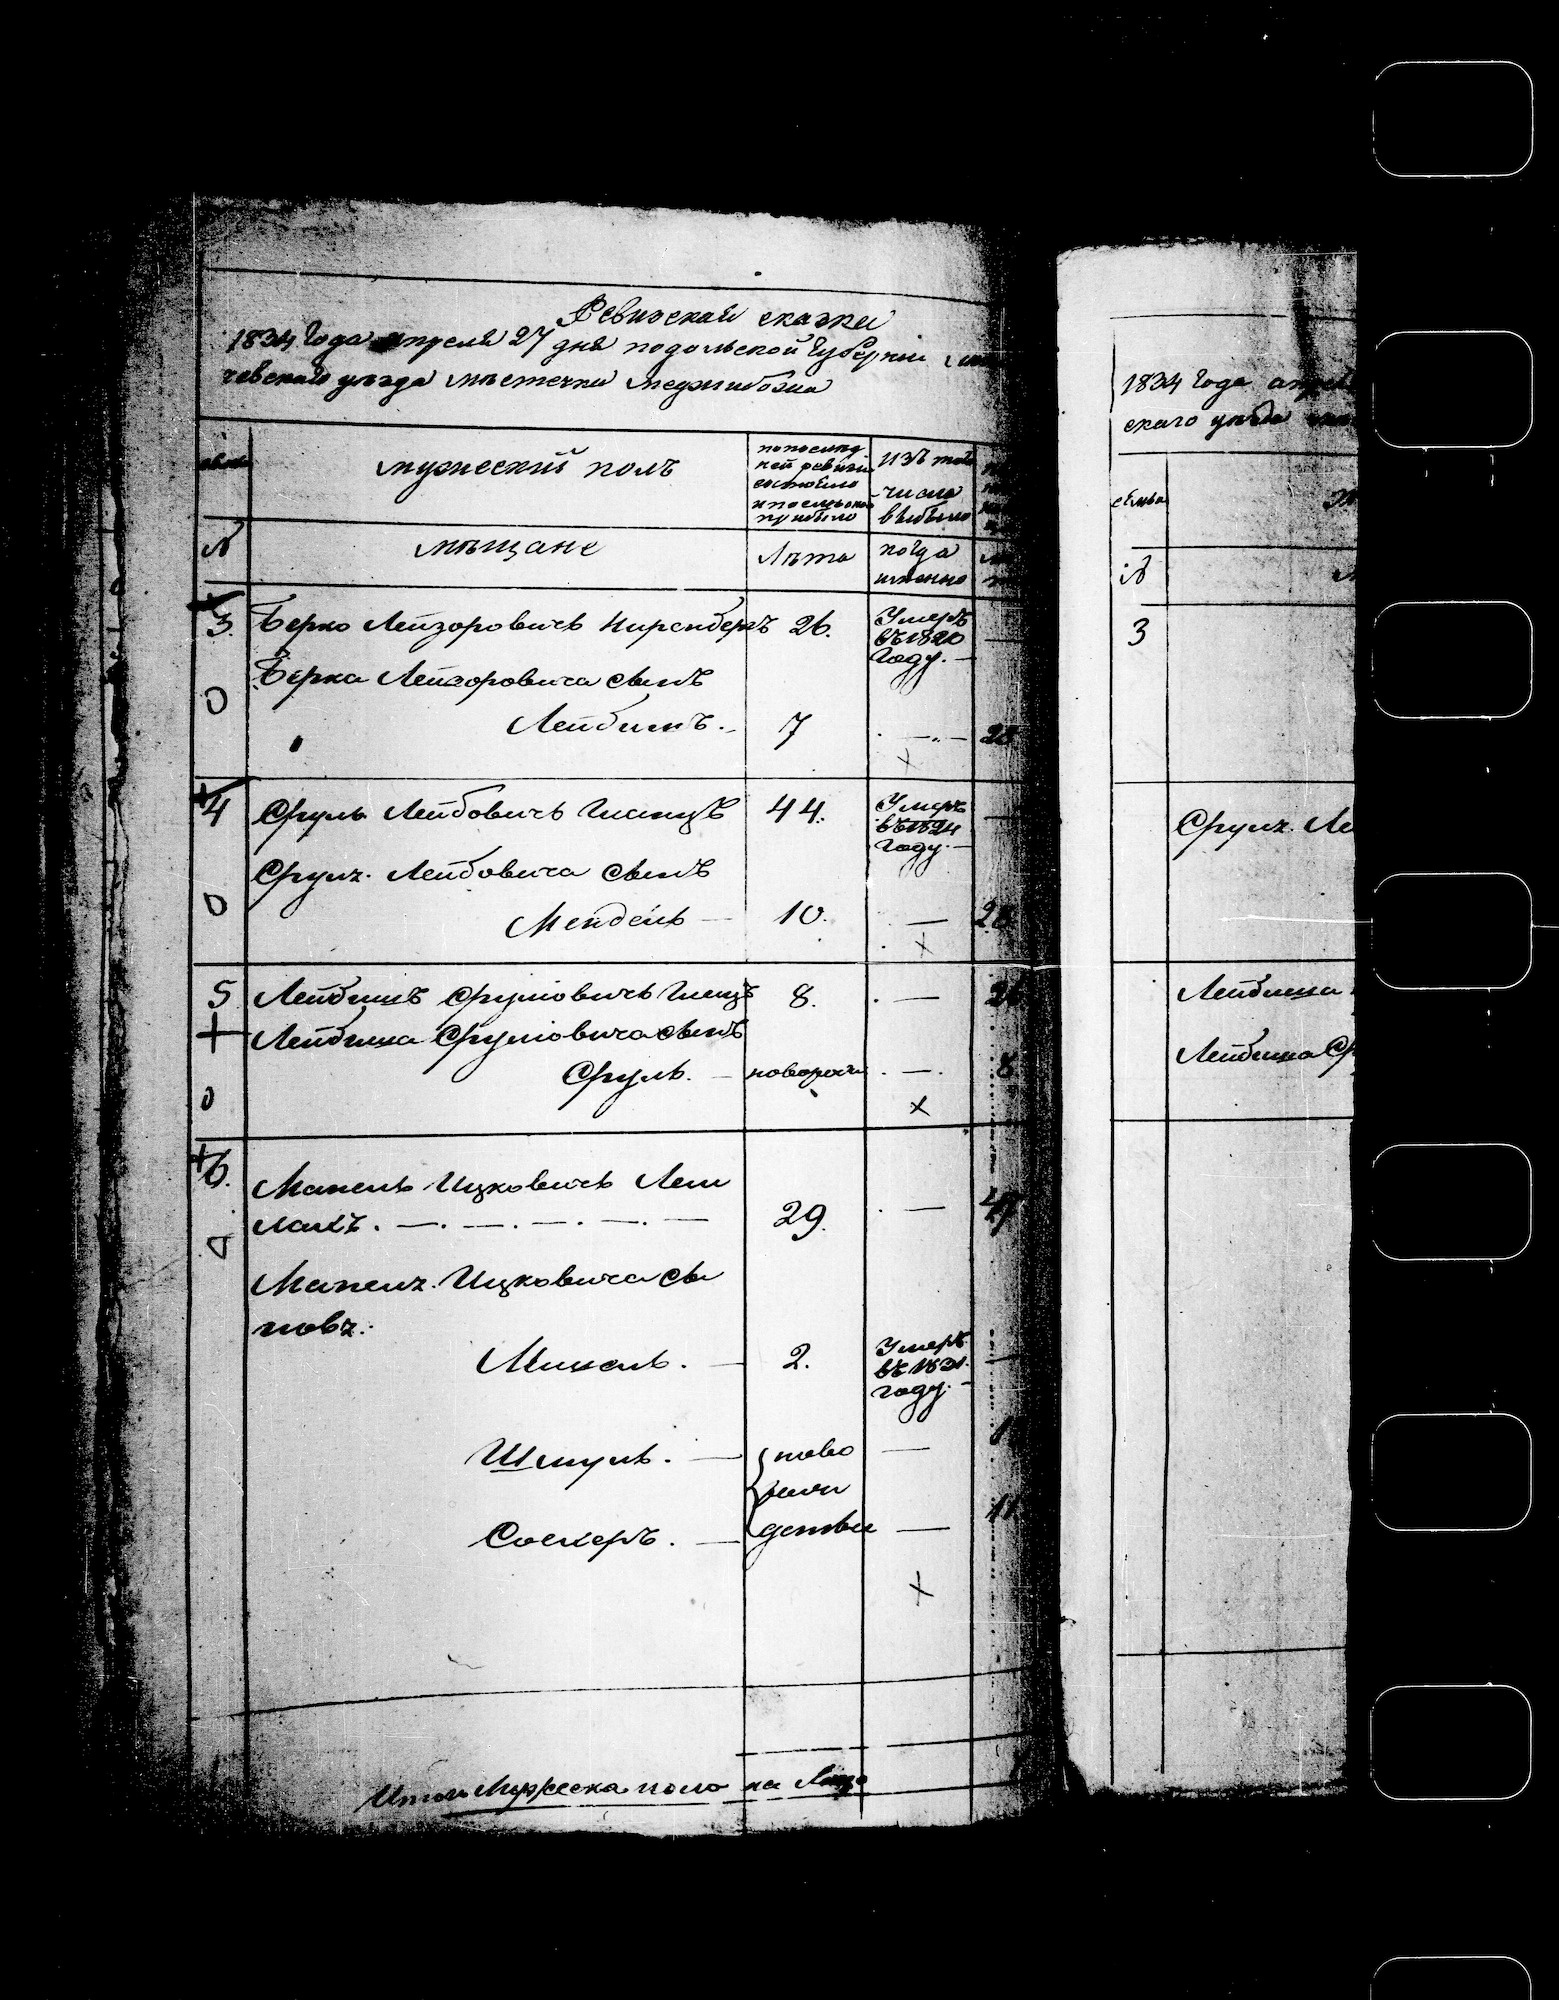 Ревизская сказка
1834 года апреля 27 дня подольской губернии
чевскаго уезда местечка меджибожа
мужеский полъ
по послед
ней ревизіи
состояло
и после оной
прибыло
изъ того
числа
выбыло
№
мѣщане
Лѣта
когда
именно
3. Берко Лейзоровичъ Ниренбергъ 26. Умеръ
въ 1820
году.
Берка Лейзоровича сынъ
Лейбишъ. 7
4 Сруль Лейбовичъ 44. Умеръ
въ 1824
году.
Сруля Лейбовича сынъ
Мендель 10.
5 Лейбишъ Срулiовичъ 8.
Лейбиша Срулiовича сынъ
Сруль. новорож
6. Манель Ицковичъ
29. 47
Манеля Ицковича сы
новя:
Михель. 2. Умеръ
въ 1831
году.
Шмуль. ново
рож
Сосхеръ. денные 11
Итого Мужеска пола на Лицо
1834 года апреля
скаго уезда
семьи
№
3
Сруля Ле
Лейбиша
Лейбиша Ср